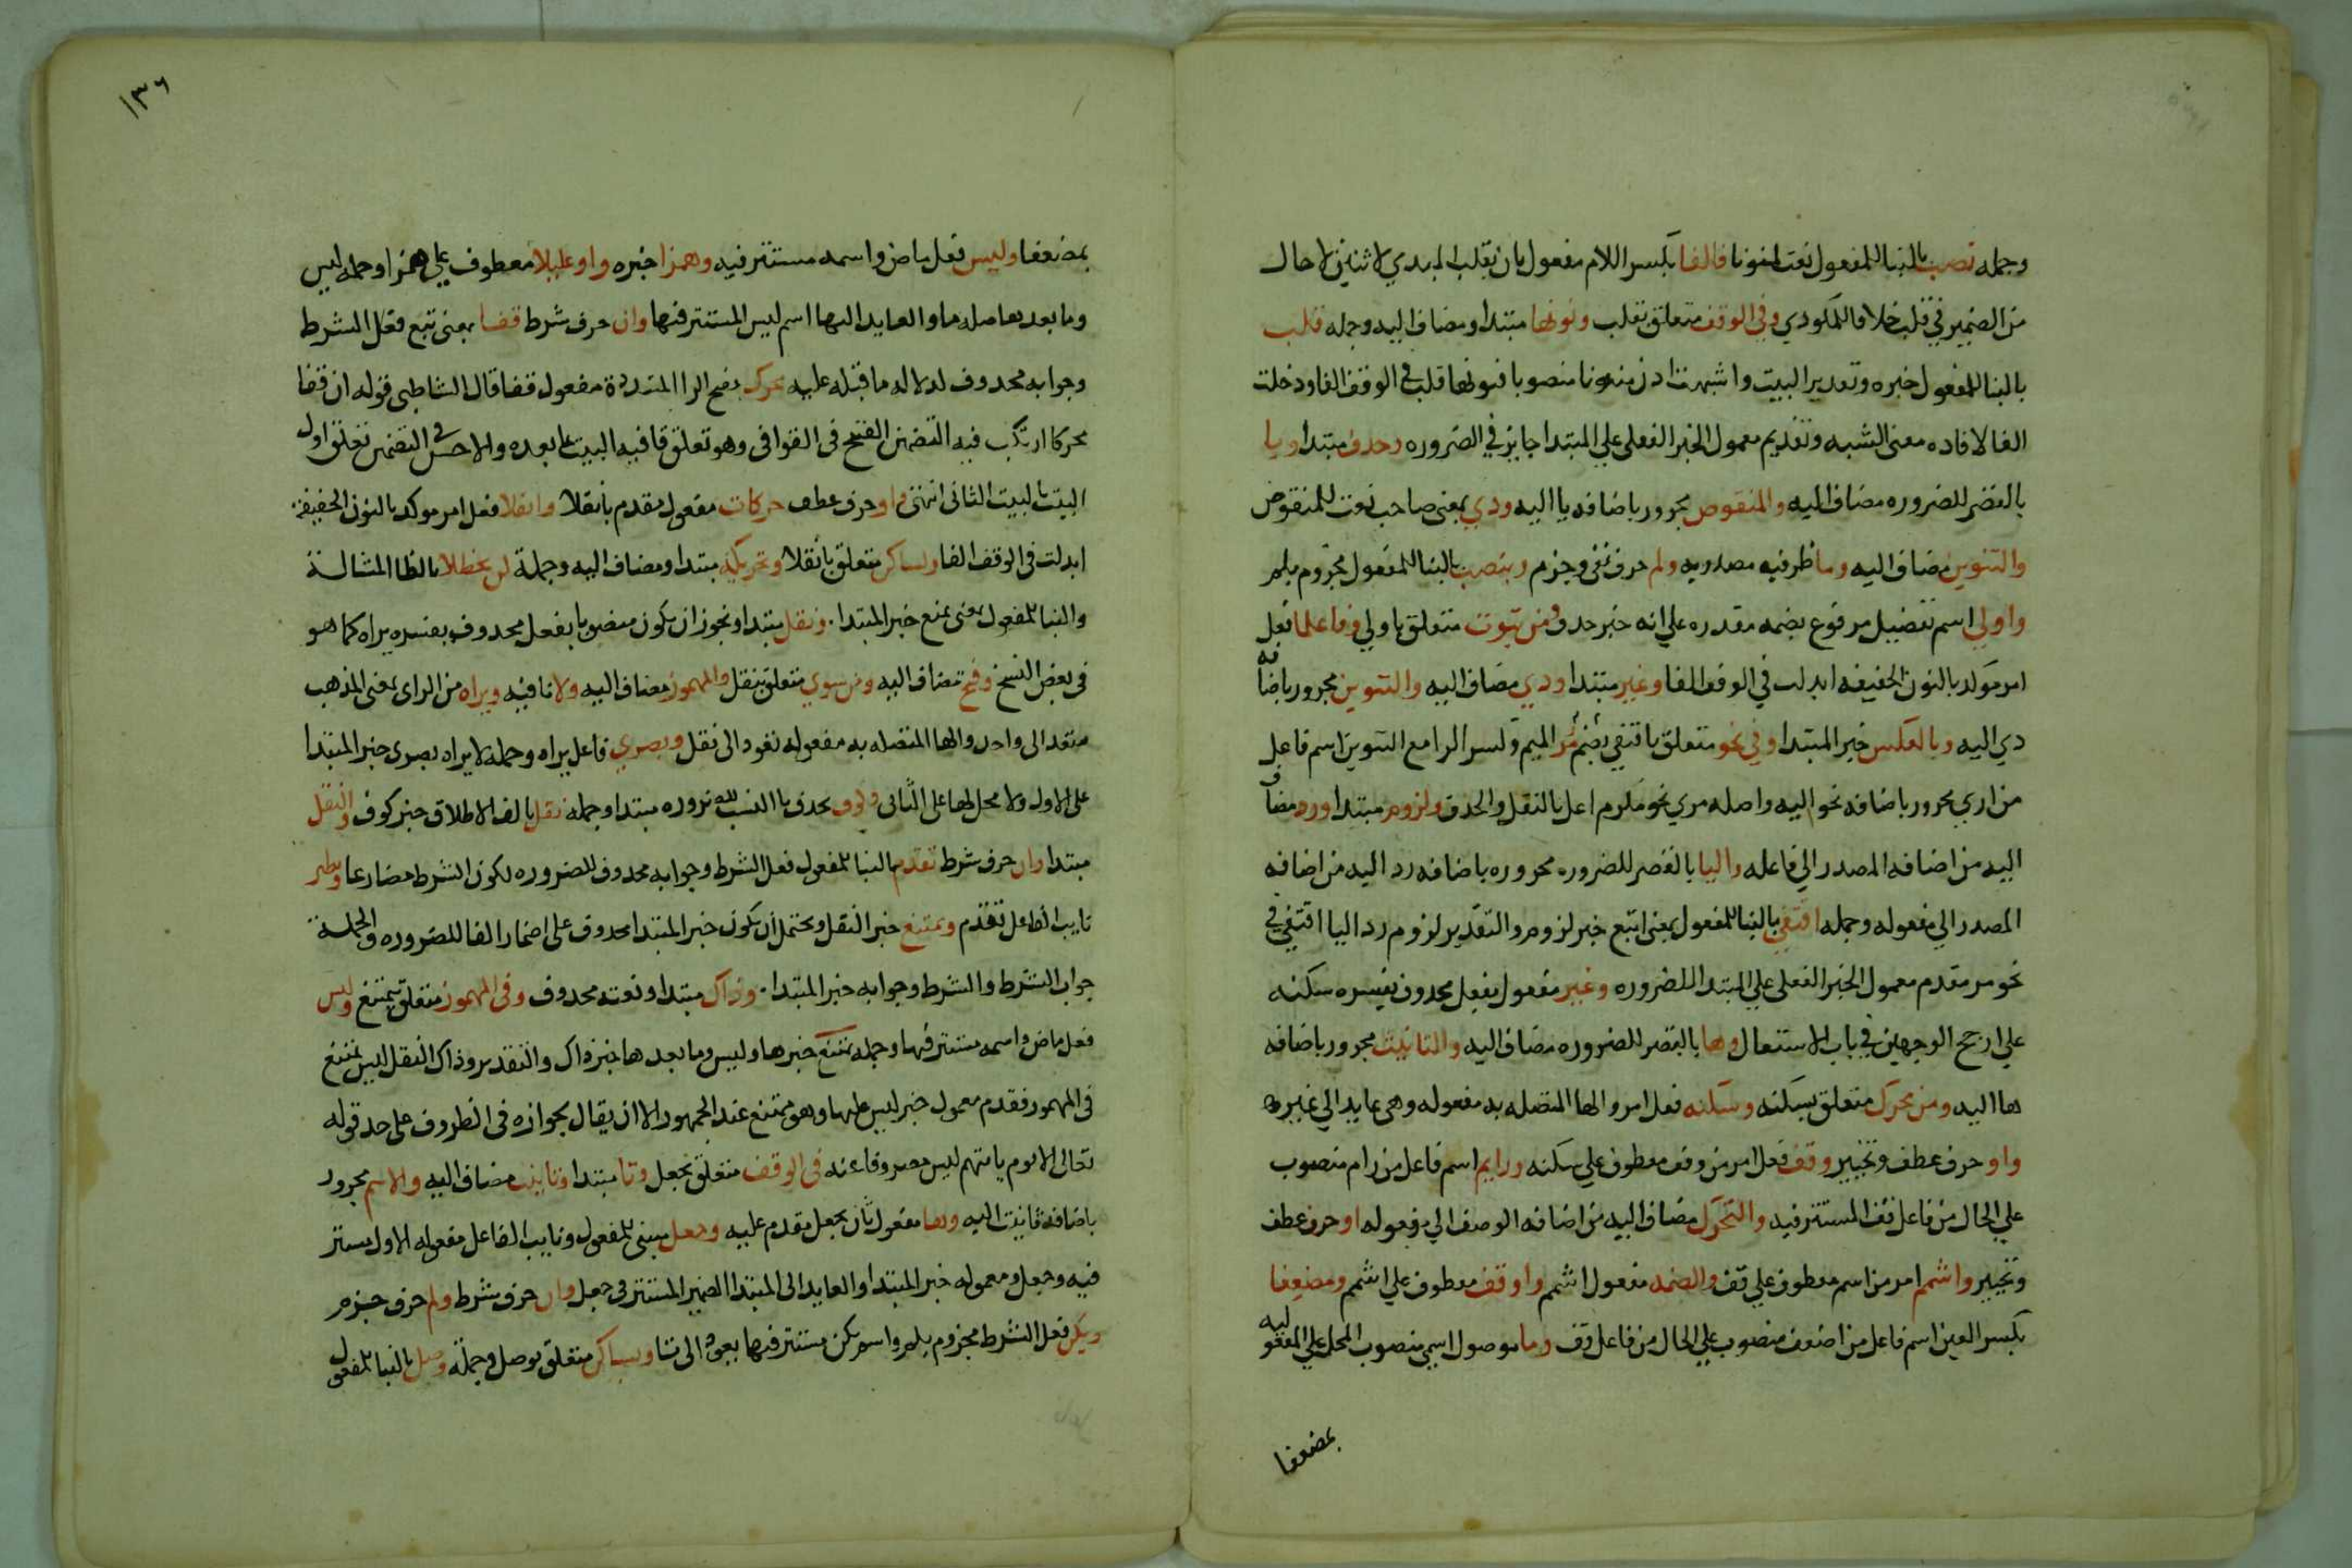 وجملة تصب بالبنا للمفعول نعت لمنونا فالفا بكسر اللام مفعول ثان بتقلب لمبدي لاثنين لا حال
من الضمير في قلب خلافا للمكودي وفي الوقف متعلق بقلب ونونها مبتدا ومضاف اليه وجمله قلب
بالبنا للمفعول خبره وتقدير البيت واشبهت اذن منونا منصوبا فنونها قلب في الوقف الفا ودخلت
الفا لافاده معنى الشبه وتقديم معمول الخبر الفعلي علي المبتدا جايز في الضروره وحذف مبتدا ويا
بالقصر للضروره مضاف اليه والمنقوص مجرور باضافه يا اليه وذي بمعنى صاحب نعت للمنقوص
والتنوين مضاف اليه وما ظرفيه مصدريه ولم حرف نفي وجزم وينصب بالبنا للمفعول مجزوم بلم
واولي اسم تفضيل مرفوع بضمه مقدره علي انه خبر حذف ومن ثبوت متعلق باولي وفاعلما فعل
امر موكد بالنون الخفيفه ابدلت في الوقف الفا وغير مبتدا وذي مضاف اليه والتنوين مجرور باضافه
ذي اليه وبالعكس خبر المبتدا وفي نحو متعلق باقتفي بضم مر الميم وكسر الرا مع التنوين اسم فاعل
من اري مجرور باضافه نحو اليه واصله مري نحو مكرم اعل بالنقل والحذف ولزوم مبتدا ورد مضاف
اليه من اضافه المصدر الي فاعله واليا بالقصر للضروره مجروره باضافه رد اليه من اضافه
المصدر الي مفعوله وجمله اقتفي بالبنا للمفعول بمعنى اتبع خبر لزوم والتقدير لزوم رد اليا اقتفي في
نحو مر مقدم معمول الخبر الفعلي علي المبتدا للضروره وغير مفعول بفعل محذوف يفسره سكنه
علي ارجح الوجهين في باب الاشتغال وها بالقصر للضروره مضاف اليه والتانيث مجرور باضافه
ها اليه ومن محرك متعلق بسكنه وسكنه فعل امر والها المتصله به مفعوله وهي عايد الي غيرها
او حرف عطف وتخيير وقف فعل امر من وقف معطوف علي سكنه ورايم اسم فاعل من رام منصوب
علي الحال من فاعل قف المستتر فيه والتحرك مضاف اليه من اضافه الوصف الي مفعوله او حرف عطف
وتخيير واشمم امر من اشم معطوف علي قف والضمه مفعول اشمم واو وقف معطوف علي اشمم ومضعفا
بكسر العين اسم فاعل من اضعف منصوب علي الحال من فاعل قف وما موصول اسمي منصوب المحل علي المفعوليه
بمضعفا
١٣٦
بمضعفا وليس فعل ماض واسمه مستتر فيه وهمزا خبره واو عليلا معطوف علي همزا وجمله ليس
وما بعدها صله ما والعايد اليها اسم ليس المستتر فيها وان حرف شرط قفا بمعنى تبع فعل الشرط
وجوابه محذوف لدلاله ما قبله عليه محركا بفتح الرا المشددة مفعول قفا قال الشاطبي قوله ان قفا
محركا ارتكب فيه التضمين القبيح في القوافي وهو تعلق قافيه البيت بما بعده والاحسن في التضمين تعلق اول
البيت بالبيت الثاني انتهى واو حرف عطف حركات مفعول مقدم بانقلا وانقلا فعل امر موكد بالنون الخفيفة
ابدلت في الوقف الفا ولساكن متعلق بانقلا وتحريكه مبتدا ومضاف اليه وجملة لن يحظلا بالظا المشالة
والبنا للمفعول بمعنى يمنع خبر المبتدا. ونقل مبتدا ويجوز ان يكون منصوبا بفعل محذوف يفسره يراه كما هو
في بعض النسخ وفتح مضاف اليه ومن سوي متعلق بنقل والمهموز مضاف اليه ولا نافيه ويراه من الراي بمعنى المذهب
متعد الى واحد والها المتصله به مفعوله تعود الى نقل وبصري فاعل يراه وجمله لا يراه بصري خبر المبتدا
على الاول ولا محل لها على الثاني وكوف بحذف يا النسب للضروره مبتدا وجمله نقل بالف الاطلاق خبر كوف والنقل
مبتدا وان حرف شرط تقدم بالبنا للمفعول فعل الشرط وجوابه محذوف للضروره لكون الشرط مضارعا ونظير
نايب الفاعل تقدم وممتنع خبر النقل ويحتمل ان يكون خبر المبتدا محذوف على اضمار الفا للضروره والجملة
جواب الشرط والشرط وجوابه خبر المبتدا. وذاك مبتدا ونعته محذوف وفي المهموز متعلق بيمتنع وليس
فعل ماض واسمه مستتر فيها وجمله يمتنع خبرها وليس وما بعدها خبر ذاك والتقدير وذاك النقل ليس يمتنع
في المهموز فقدم معمول خبر ليس عليها وهو ممتنع عند الجمهور الا ان يقال بجوازه في الظروف على حد قوله
تعالى الا يوم ياتيهم ليس مصروفا عنه في الوقف متعلق بجعل وتا مبتدا وتانيث مضاف اليه والاسم مجرور
باضافة تانيث اليه وها مفعول ثان بجعل مقدم عليه وجعل مبني للمفعول ونايب الفاعل مفعوله الاول مستتر
فيه وجعل ومعموله خبر المبتدا والعايد الى المبتدا الضمير المستتر في جعل وان حرف شرط ولم حرف جزم
ويكن فعل الشرط مجزوم بلم واسم يكن مستتر فيها يعود الى تا وبساكن متعلق بوصل وجملة وصل بالبنا للمفعول